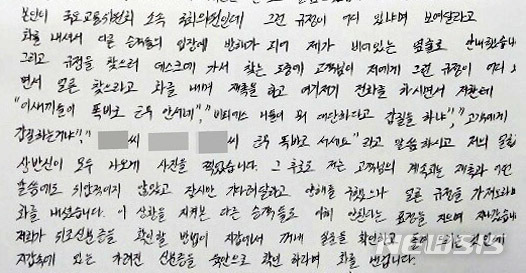 본인이 국토교통위원회 소속 국회의원인데 그런 규정이 어디 있냐며 보여달라고
화를 내셔서 다른 승객들의 입장에 방해가 되어 제가 비어있는 옆으로 안내했습니
그리고 규정을 찾으러 데스크에 가서 찾는 도중에 고객님이 저에게 그런 규정이 어디
면서 얼른 찾으라고 화를 내며 재촉을 하고 여기저기 전화를 하시면서 저한테
"이새끼들이 똑바로 근무 안서네", 니들이 뭐 대단하다고 갑질을 하냐", "고객에게
갑질하는거냐", 씨 씨 씨 근무 똑바로 서세요"라고 말씀하시고 저의 얼굴
상반신이 모두 나오게 사진을 찍었습니다. 그 후로도 저는 고객님의 계속되는 재촉과
말씀에도 위압적이지 않았고 잠시만 기다려달라고 양해를 구했으나 얼른 규정을 가져오라며
화를 내셨습니다. 이 상황을 지켜본 다른 승객들도 표정을 지으며
제가 뒤로 신분증을 확인할 방법이 지갑에서 꺼내 확인하고
지갑속에 있는 가려진 신분증을 육안으로 확인하라며 화를 냅니다.
NEWSIS